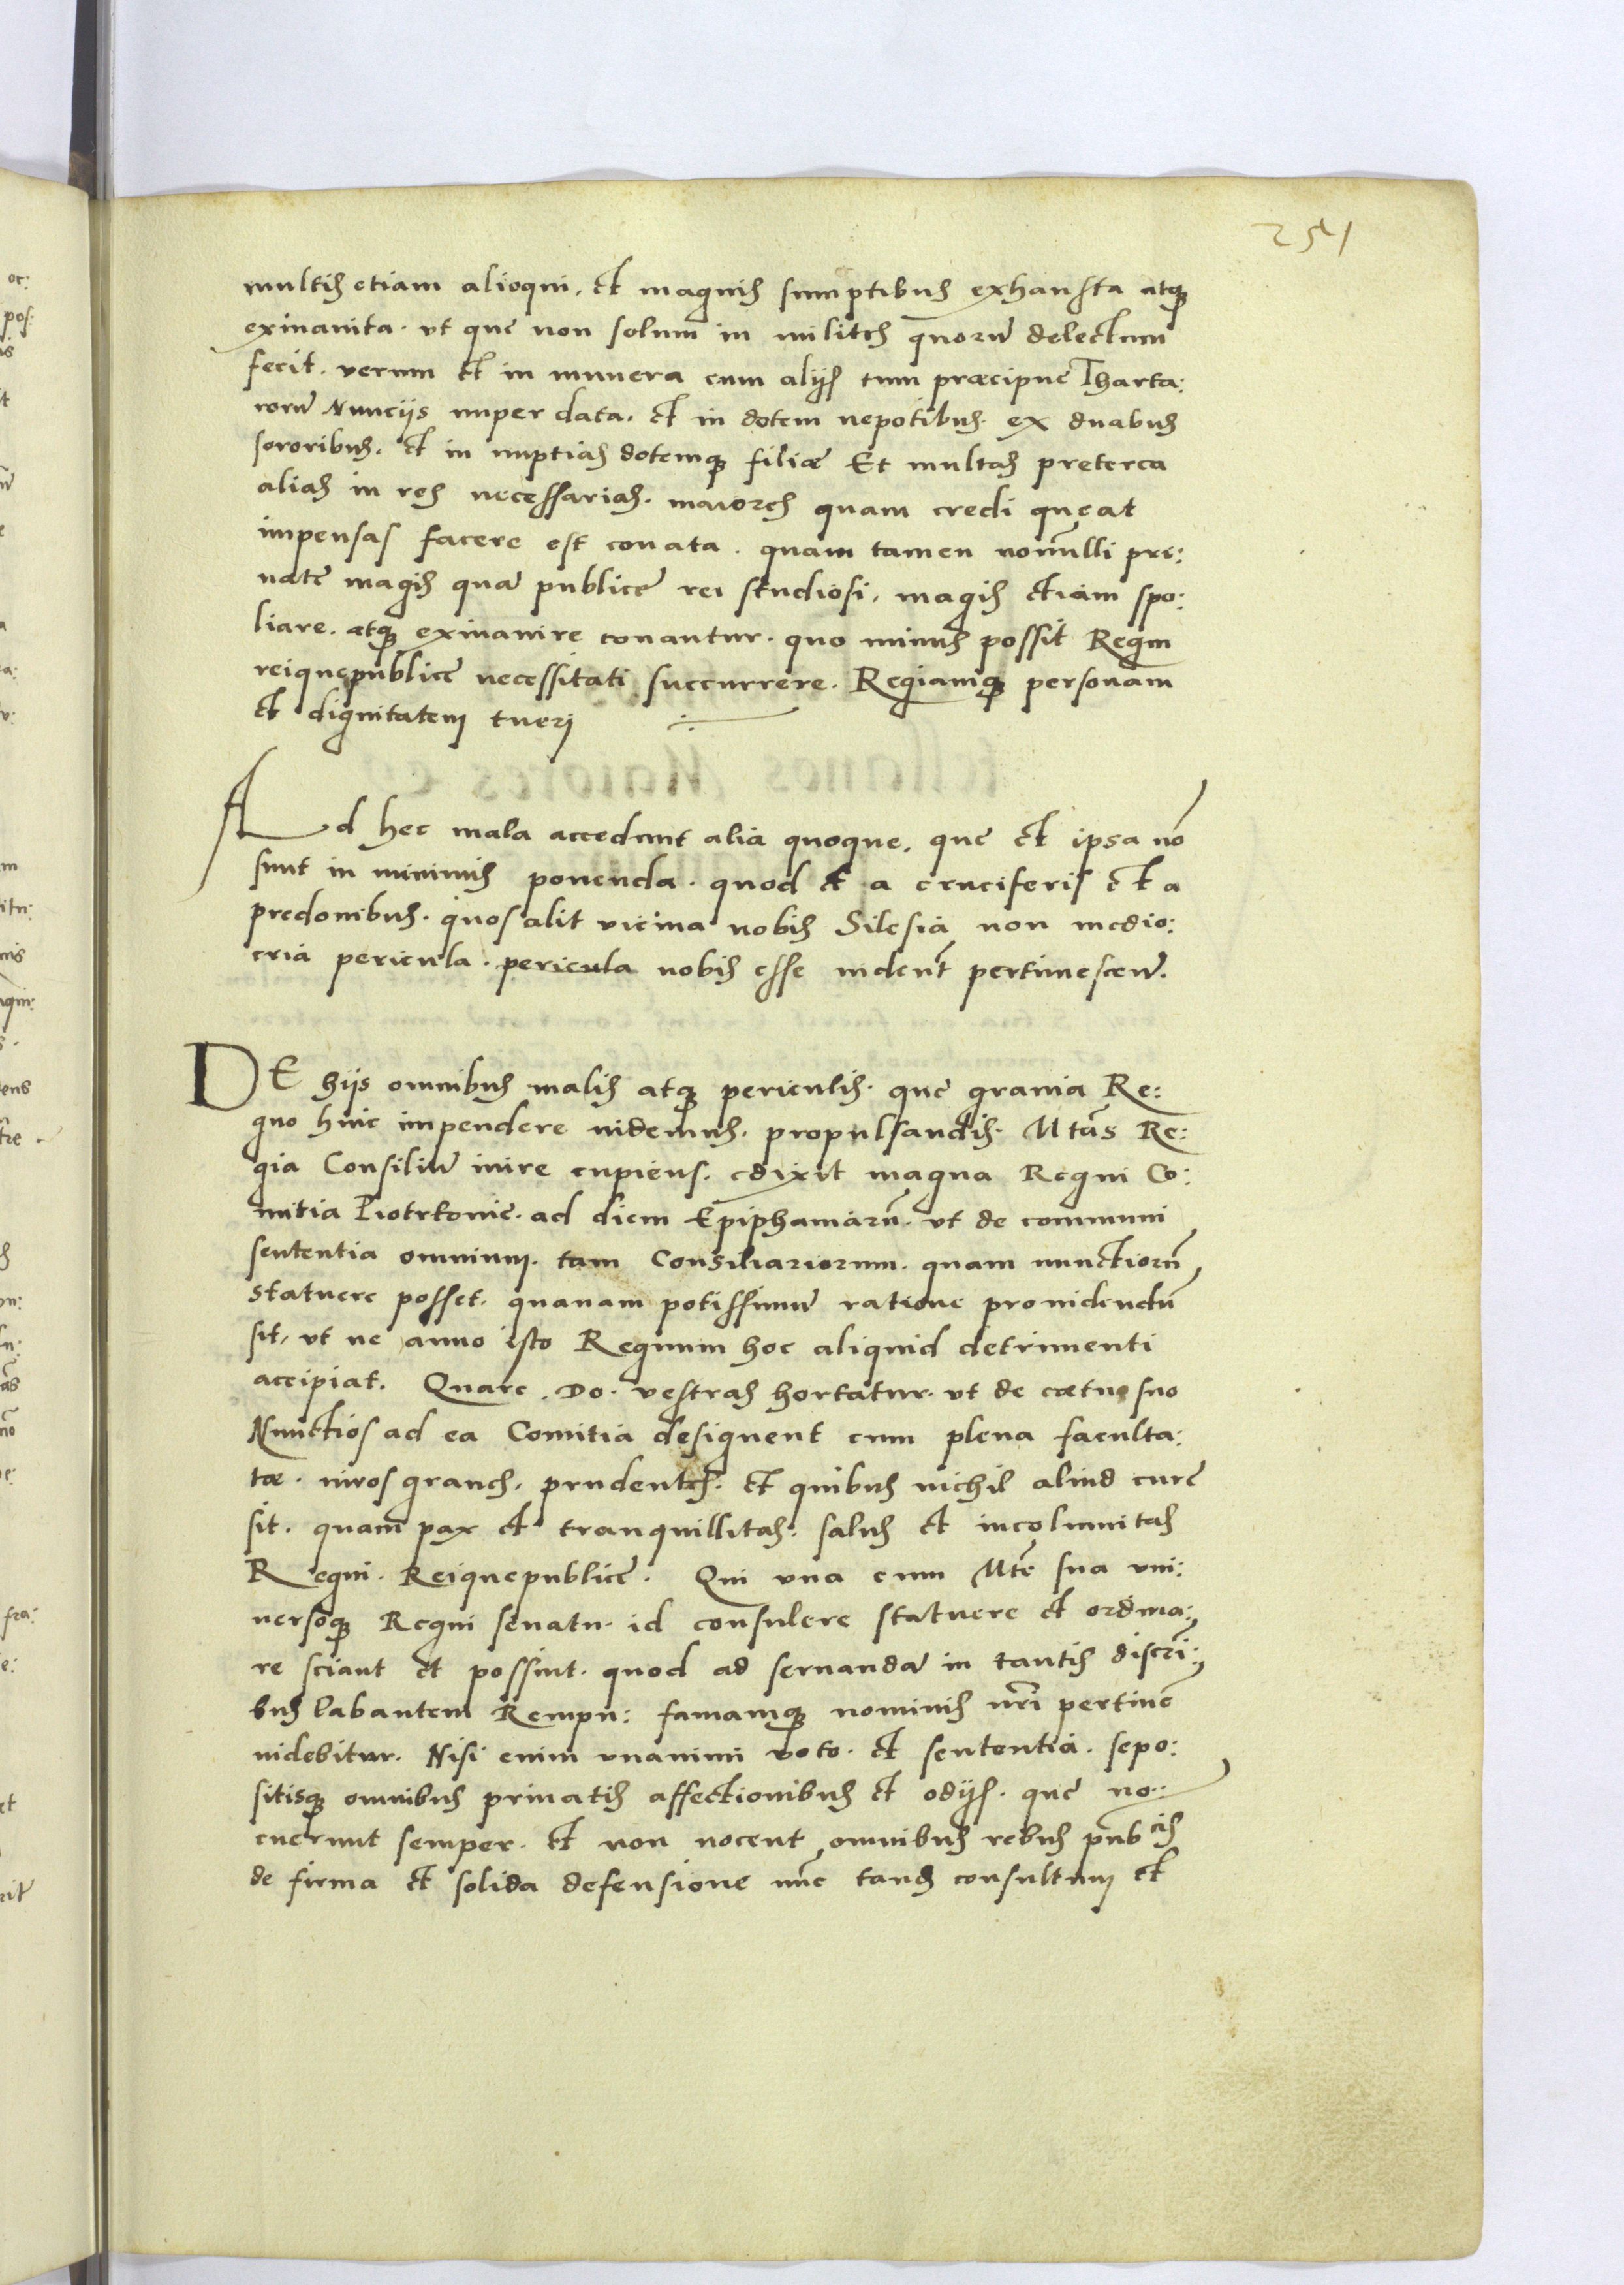 251
multis etiam alioqui, et magnis sumptibus exhausta atq3
exinanita. vt que non solum in milites quorū delectum
fecit. verum et in munera cum alijs tum præcipue Tharta:
rorū Nuncijs nuper data. et in dotem nepotibus ex duabus
sororibus. et in nuptias dotemq3 filiæ Et multas preterea
alias in res necessarias. maiores quam credi queat
impensas facere est conata. quam tamen nonnulli pri:
uate magis quā publice rei studiosi, magis etiam spo:
liare. atq3 exinanire conantur. quo minus possit Regni
reiquepublice necessitati succurrere. Regiamq3 personam
et dignitatem tueri
Ad hec mala accedunt alia quoque, que et ipsa nō
sunt in minimis ponenda. quod et a cruciferis et a
predonibus. quos alit vicina nobis Silesia non medio:
cria pericula. pericula nobis esse uident pertimescenda.
DE hijs omnibus malis atq3 periculis. que grauia Re:
gno huic impendere uidemus. propulsandis. Mtas Re:
gia Consiliū inire cupiens. edixit magna Regni Co:
mitia Piotrkouie. ad diem Epiphaniarū. vt de communi
sententia omnium. tam Consiliariorum. quam nunctiorū
statuere posset. quanam potissimū ratione prouidendū
sit, vt ne anno isto Regnum hoc aliquid detrimenti
accipiat. Quare. Do. vestras hortatur. vt de cætu suo
Nunctios ad ea Comitia designent cum plena faculta:
tæ. uiros graues. prudentes. et quibus nichil aliud cure
sit. quam pax et tranquillitas. salus et incolumitas
Regni. Reiquepublice. Qui vna cum Mte sua vni:
uersoq3 Regni senatu. id consulere statuere et ordina:
re sciant et possint. quod ad seruandā in tantis discri:
bus labantem Rempu: famamq3 nominis nr̄i pertine
uidebitur. Nisi enim vnanimi voto. et sententia. sepo:
sitisq3 omnibus priuatis affectionibus et odijs. que no:
cuerunt semper. et non nocent omnibus rebus pubcis
de firma et solida defensione nūc tandē consultum et